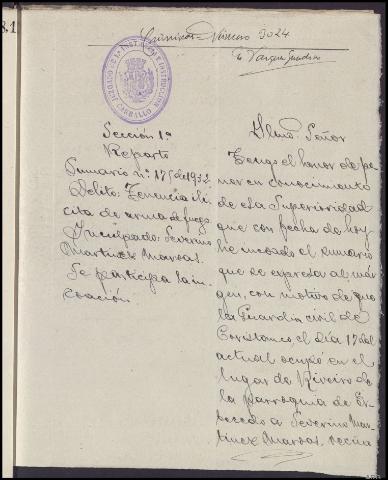 3024
JUZGADO DE 1ª INSTANCIA E INSTRUCCION
CARBALLO
Sección 1ª
Reparto
Sumario nº 175 de 1932
Delito: Tenencia ili-
cita de arma de fuego
Inculpado: Severino
Martinez Marvas.
Se participa la in-
coación.
Ilmo. Señor
Tengo el honor de po-
ner en conocimiento
de esa Superioridad
que con fecha de hoy
he incoado el sumario
que se expresa al már-
gen, con motivo de que
la Guardia civil de
Coristanco el día 17 del
actual ocupó en el
lugar de Riveiro de
la parroquia de Er-
becedo a Severino Mar-
tinez Marvas, vecino